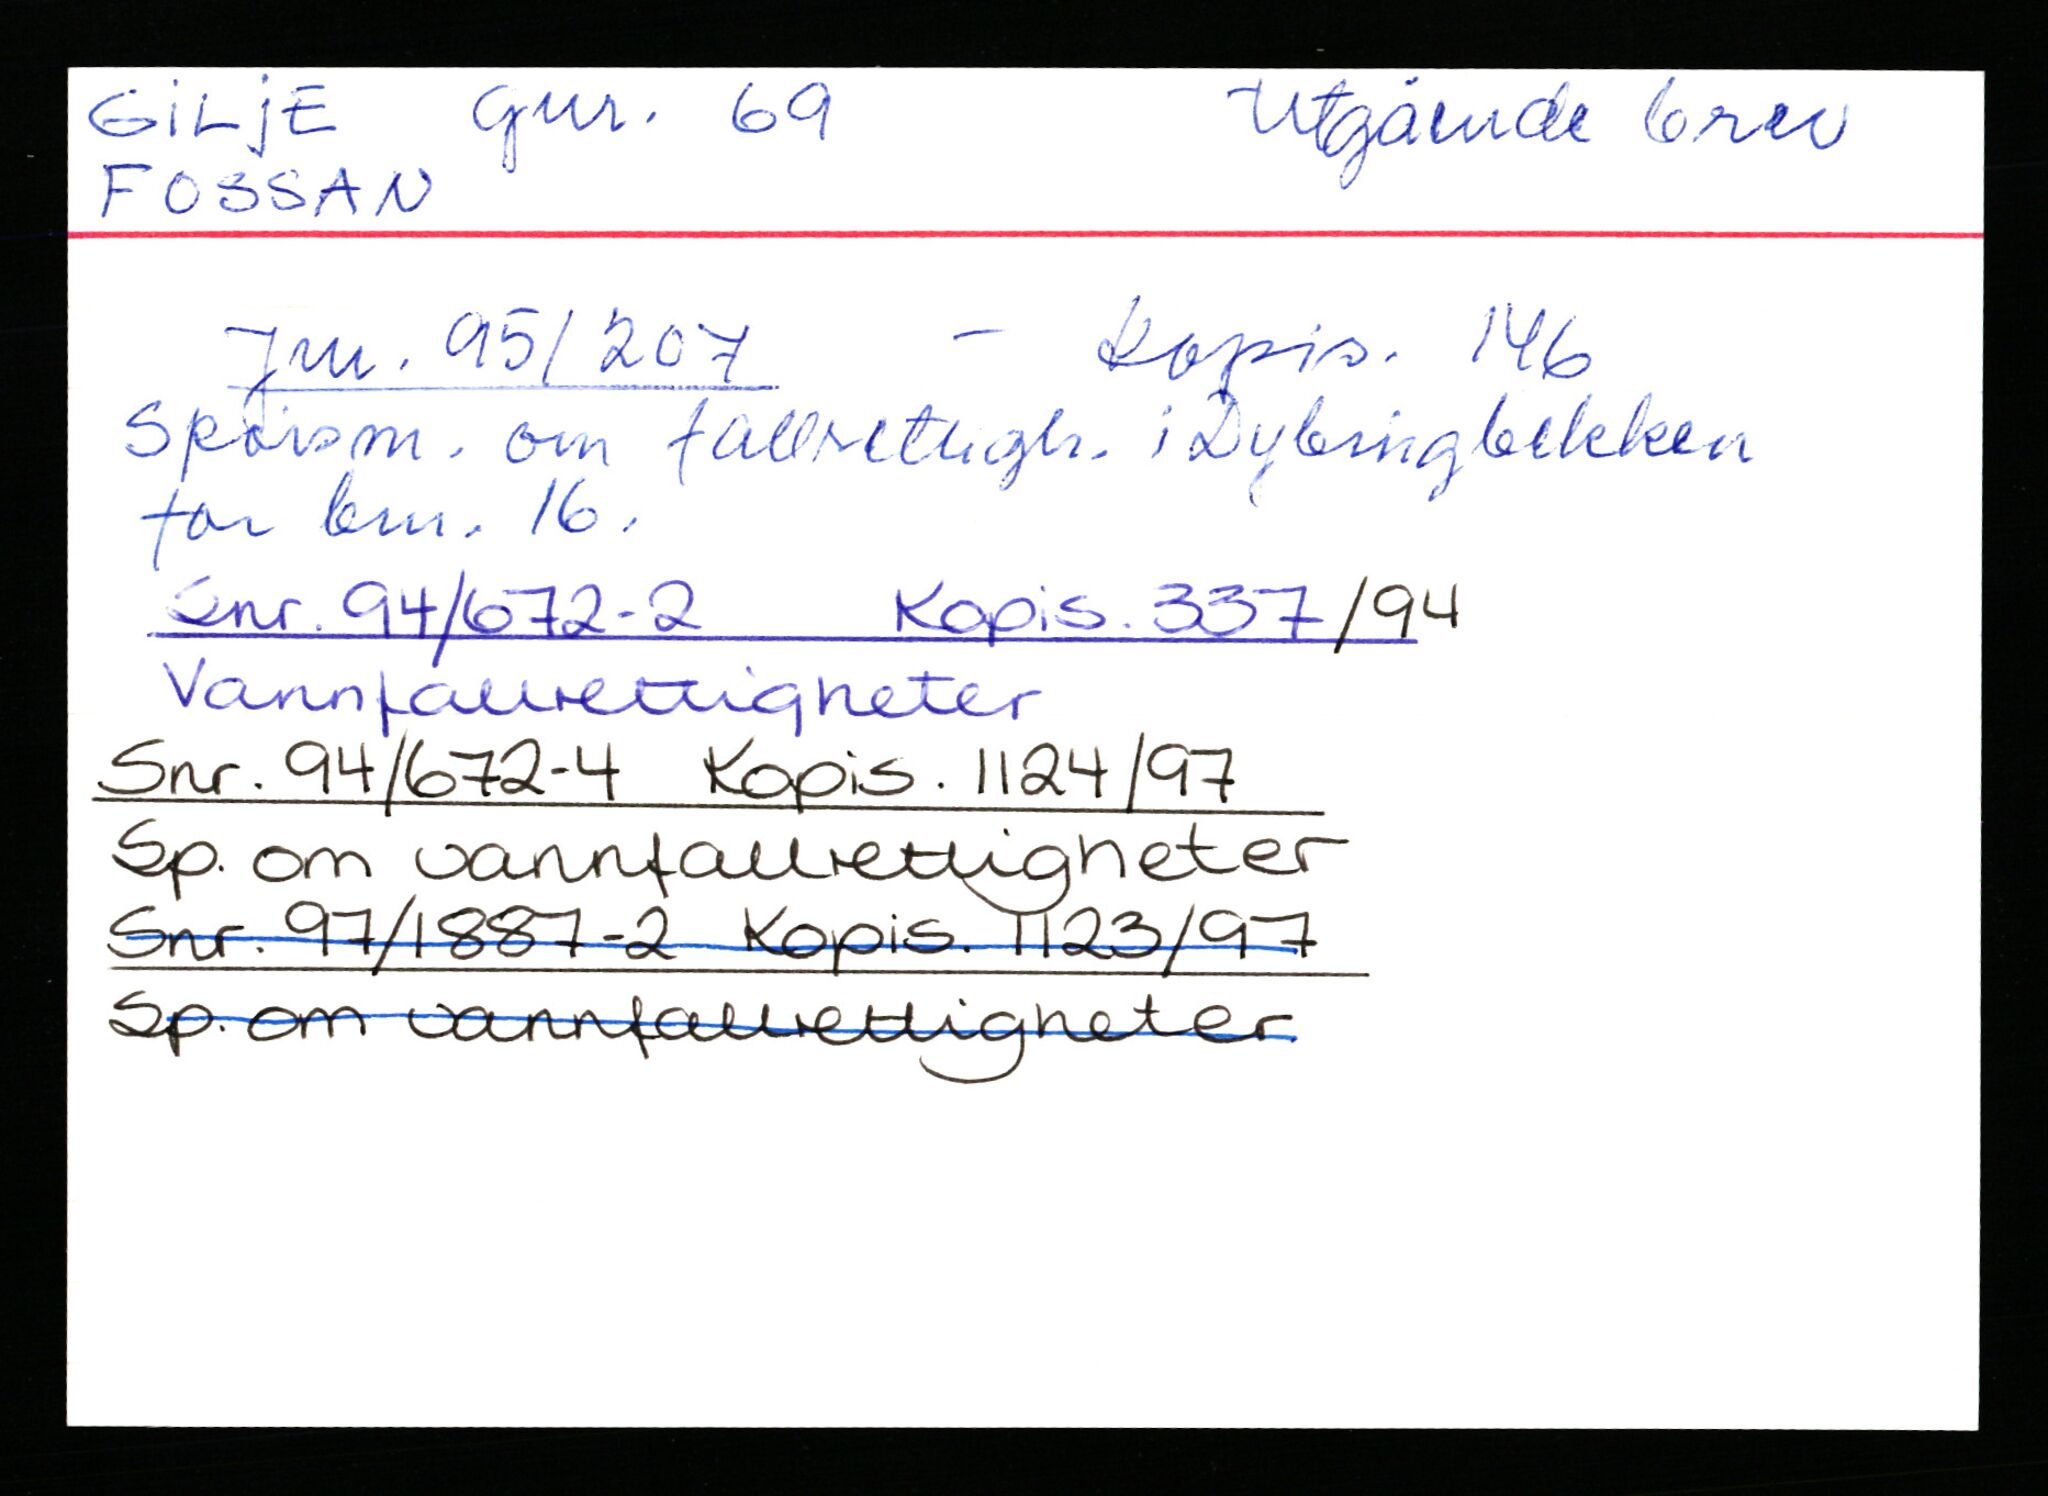 GILJE gnr. 69 Utgående brev
FOSSAN
Jnr. 95/207 - Kopis. 146
Spørsm. om fallrettigh. i Dybingbekken
for bnr. 16.
Snr. 94/672-2 Kopis. 337/94
Vannfallrettigheter
Snr. 94/672-4 Kopis. 1124/97
Sp. om vannfallrettigheter
Snr. 97/1887-2 Kopis. 1123/97
Sp. om vannfallrettigheter